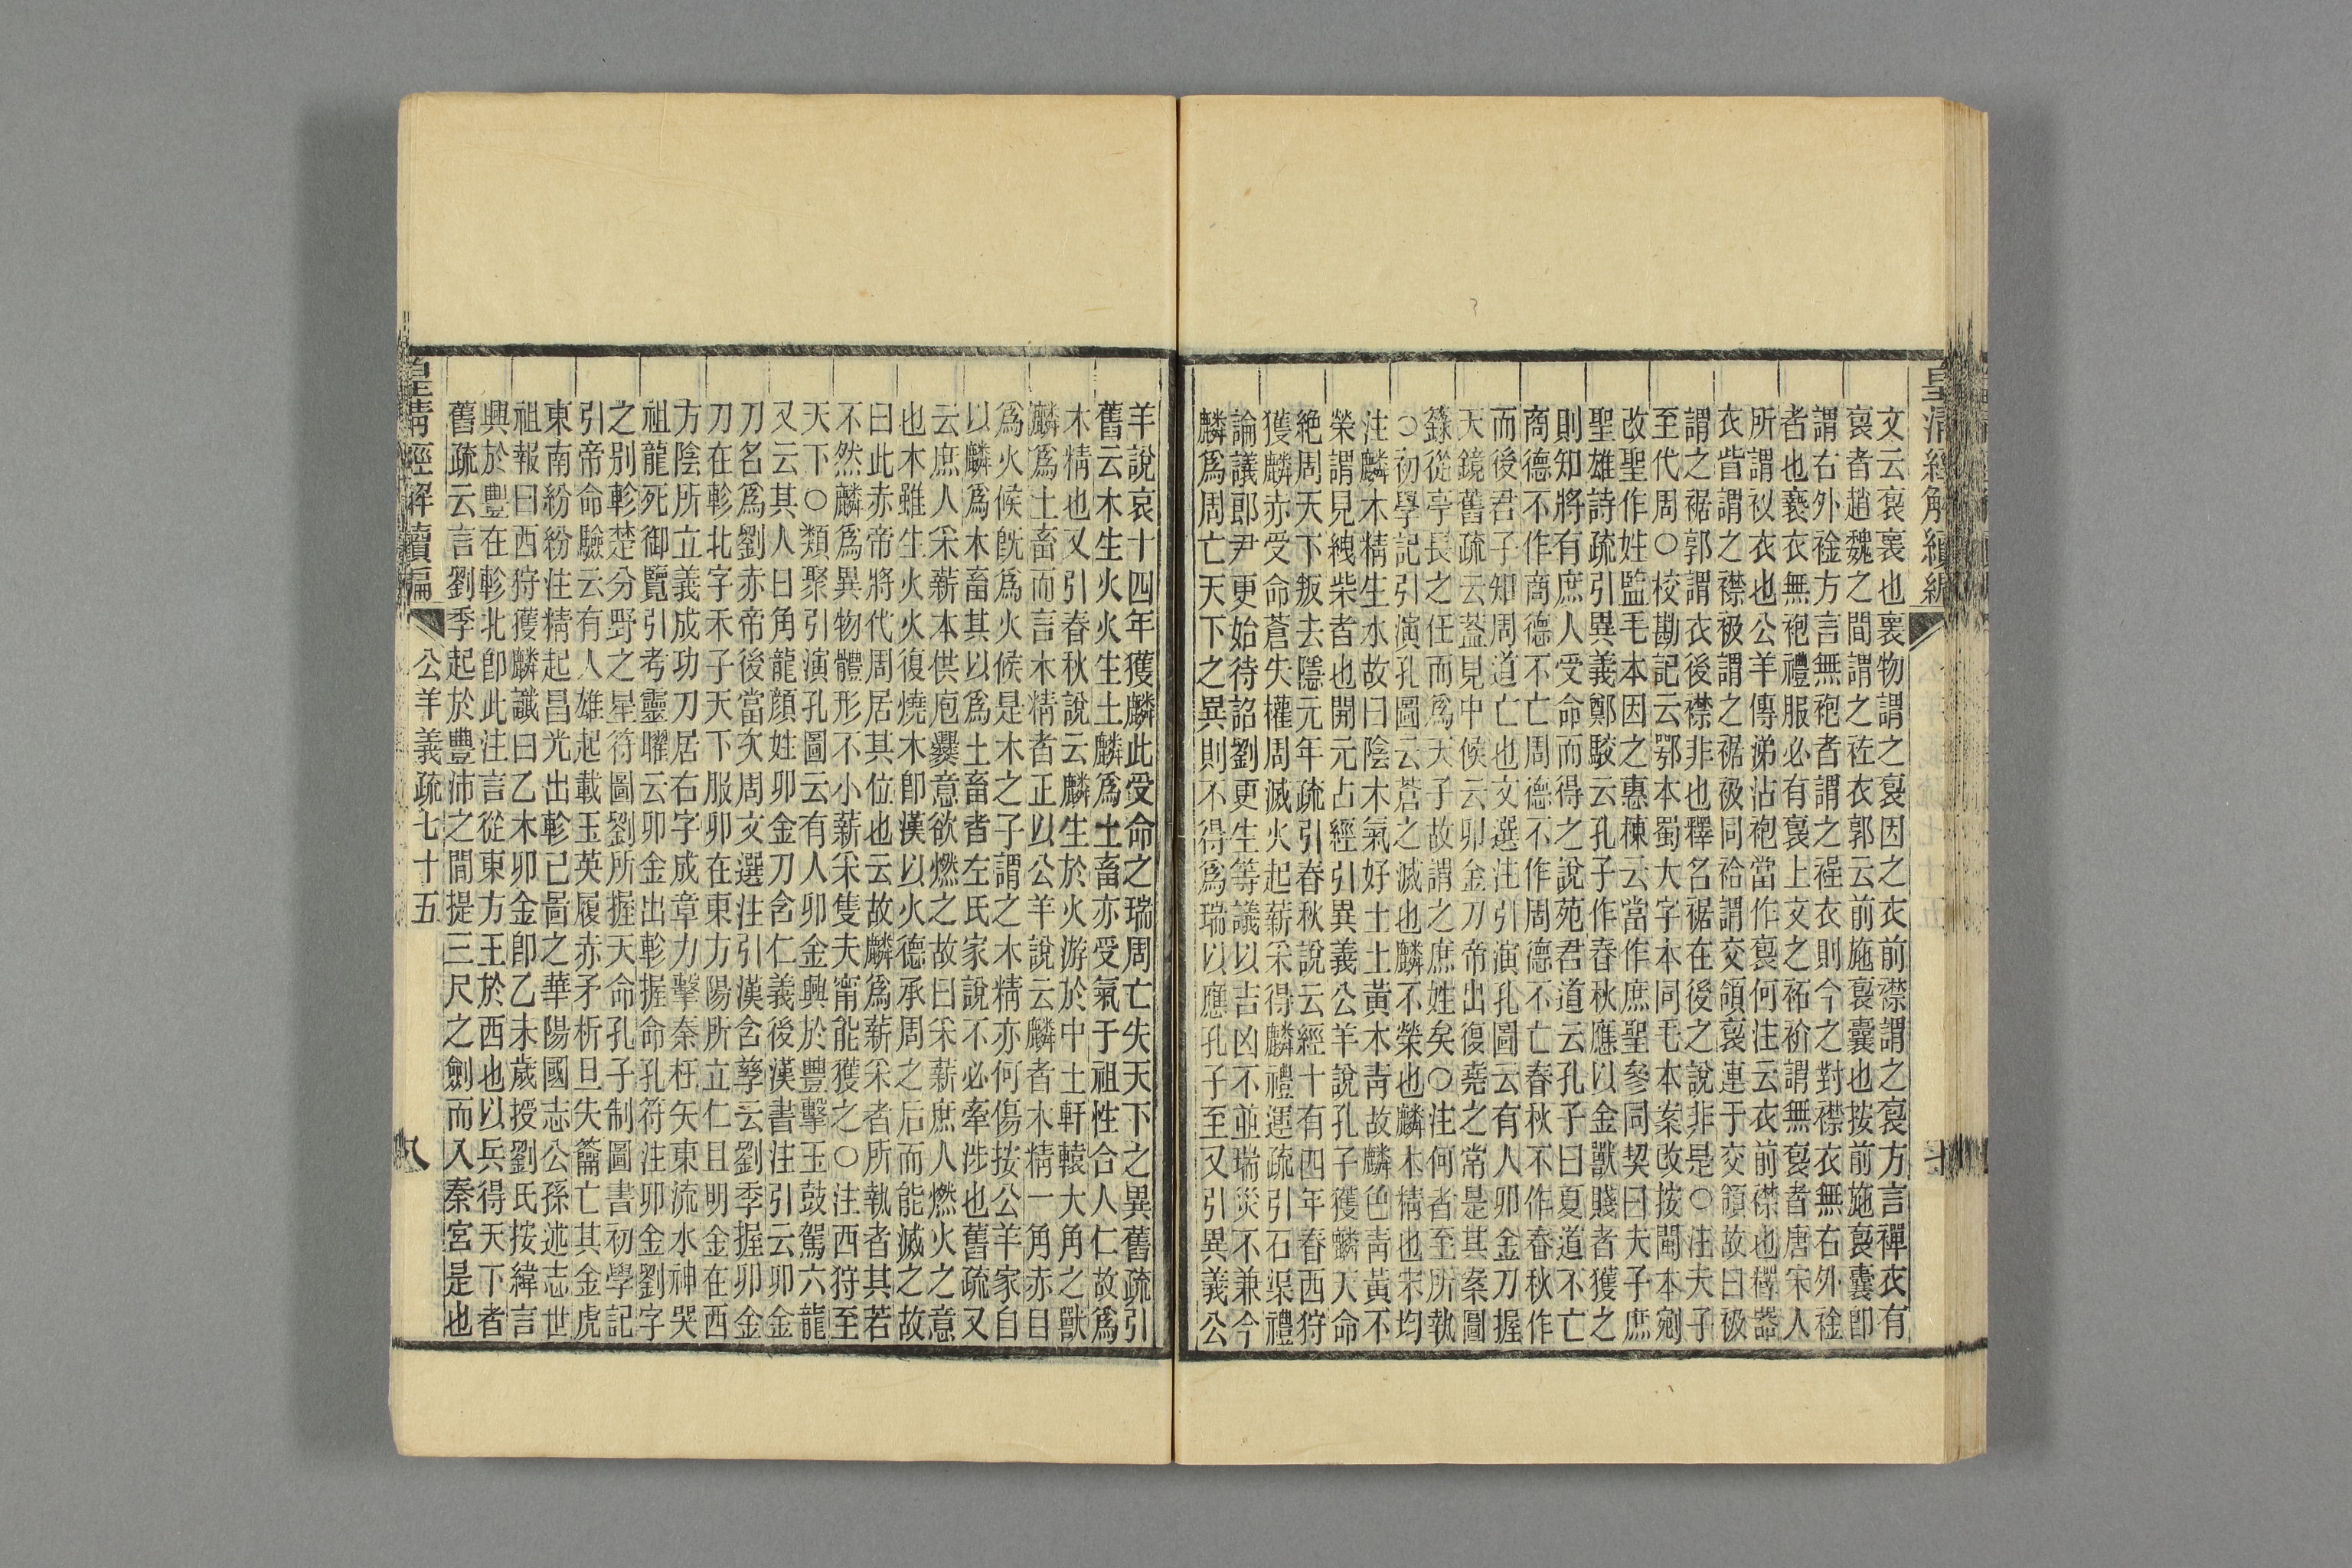 皇清經解續編
文云裦裏也裏物謂之裦因之衣前襟謂之裦方言禪衣有
裦者趙魏之間謂之袏衣郭云前施裦囊也按前施裦囊即
謂右外裣方言無袍者謂之裎衣則今之對襟衣無右外裣
者也褻衣無袍禮服必有裦上文之袥衸謂無裦者唐宋人
所謂衩衣也公羊傳涕沾袍當作裦何注云衣前襟也釋器
衣眥謂之襟衱謂之裾衱同袷謂交領裦連于交領故曰衱
謂之裾郭謂衣後襟非也釋名裾在後之說非是○注夫子
至代周○校勘記云鄂本蜀大字本同毛本案改按閩本剜
改聖作姓監毛本因之惠棟云當作庶聖參同契曰夫子庶
聖雄詩疏引異義鄭駁云孔子作春秋應以金獸賤者獲之
則知將有庶人受命而得之說苑君道云孔子曰夏道不亡
商德不作商德不亡周德不作周德不亡春秋不作春秋作
而後君子知周道亡也文選注引演孔圖云有人卯金刀握
天鏡舊疏云葢見中候云卯金刀帝出復堯之常是其案圖
籙從亭長之任而爲天子故謂之庶姓矣○注何者至所執
○初學記引演孔圖云蒼之滅也麟不榮也麟木精也宋均
注麟木精生水故曰陰木氣好土土黃木靑故麟色靑黃不
榮謂見絏柴者也開元占經引異義公羊說孔子獲麟天命
絕周天下叛去隱元年疏引春秋說云經十有四年春西狩
獲麟赤受命蒼失權周滅火起薪采得麟禮運疏引石渠禮
論議郎尹更始待詔劉更生等議以吉凶不並瑞災不兼今
麟爲周亡天下之異則不得爲瑞以應孔子至又引異義公
羊說哀十四年獲麟此受命之瑞周亡失天下之異舊疏引
舊云木生火火生土麟爲土畜亦受氣于祖性合人仁故爲
木精也又引春秋說云麟生於火游於中土軒轅大角之獸
麟爲土畜而言木精者正以公羊說云麟者木精一角赤目
爲火候旣爲火候是木之子謂之木精亦何傷按公羊家自
以麟爲木畜其以爲土畜者左氏家說不必牽涉也舊疏又
云庶人采薪本供庖爨意欲燃之故曰采薪庶人燃火之意
也木雖生火火復燒木卽漢以火德承周之后而能滅之故
曰此赤帝將代周居其位也云故麟爲薪采者所執者其若
不然麟爲異物體形不小薪采隻夫甯能獲之○注西狩至
天下○類聚引演孔圖云有人卯金興於豐擊玉鼓駕六龍
又云其人日角龍顔姓卯金刀含仁義後漢書注引云卯金
刀名爲劉赤帝後當次周文選注引漢含孳云劉季握卯金
刀在軫北字禾子天下服卯在東方陽所立仁且明金在西
方陰所立義成功刀居右字成章刀擊秦枉矢東流水神哭
祖龍死御覽引考靈曜云卯金出軫握命孔符注卯金劉字
之別軫楚分野之星符圖劉所握天命孔子制圖書初學記
引帝命驗云有人雄起載玉英履赤矛析旦失籥亡其金虎
東南紛紛注精起昌光出軫已啚之華陽國志公孫述志世
祖報曰西狩獲麟讖曰乙木卯金卽乙未歲授劉氏按緯言
興於豐在軫北卽此注言從東方王於西也以兵得天下者
舊疏云言劉季起於豐沛之間提三尺之劍而入秦宮是也
皇淸經解續編 公羊義疏七十五 八